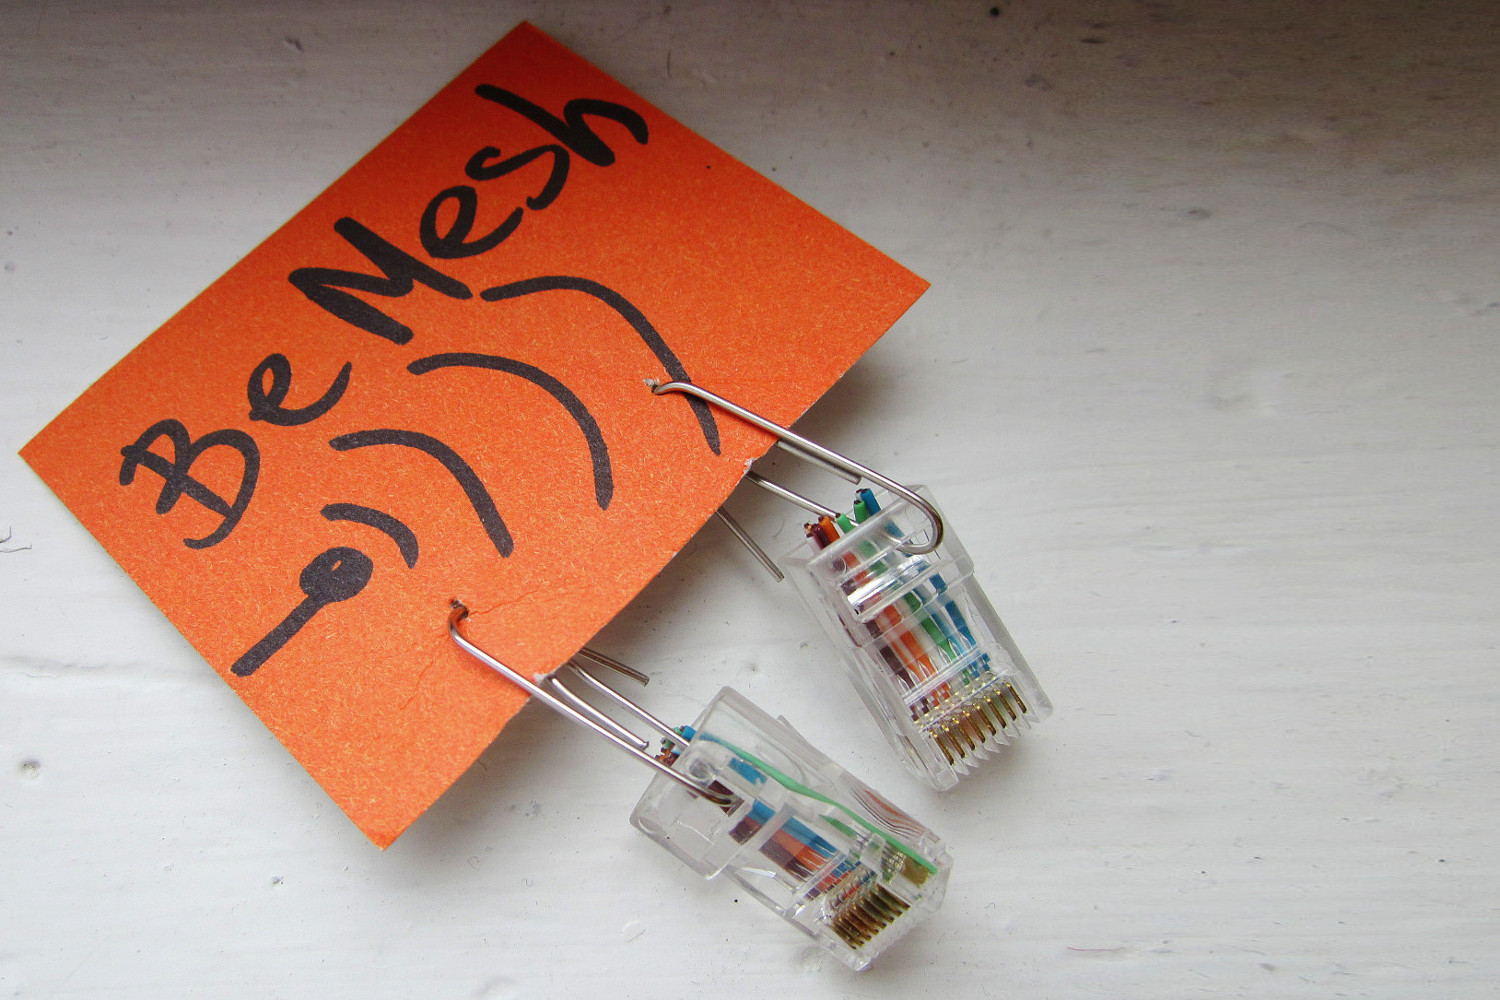 Be Mesh